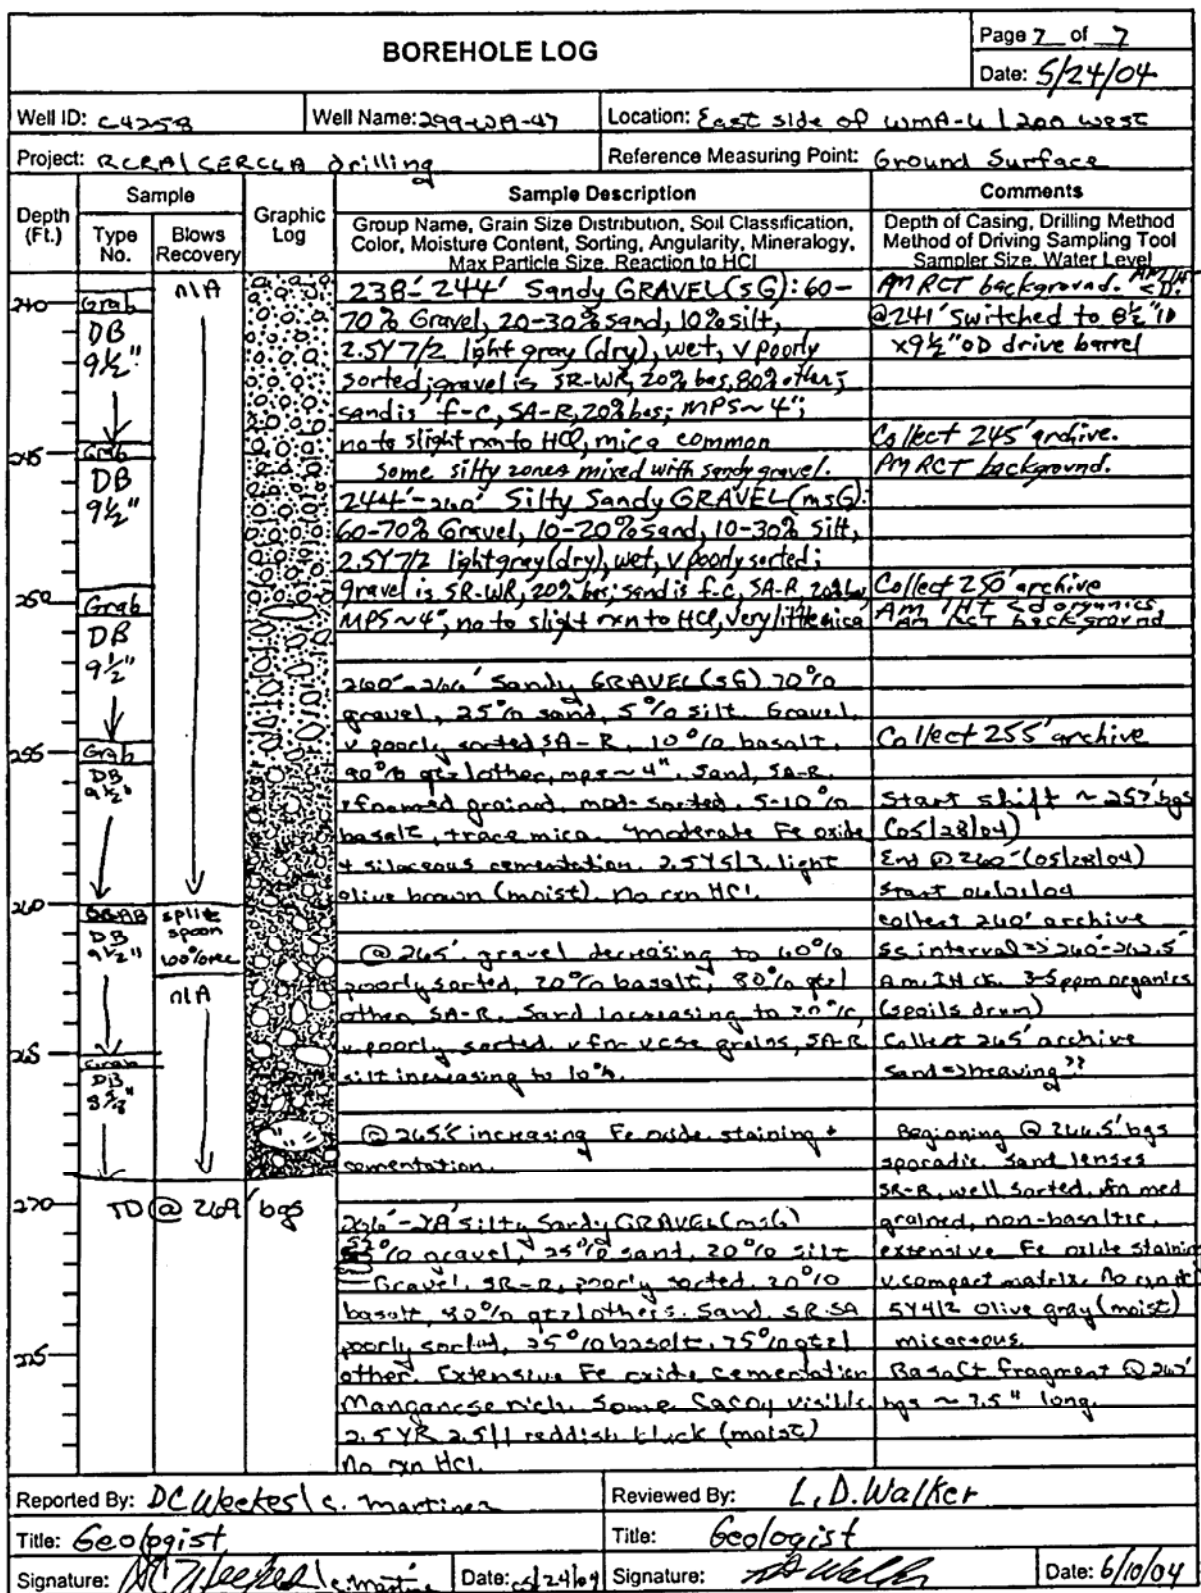 BOREHOLE LOG
Page 7 of 7
Date: 5/24/04
Well ID: C4258
Well Name: 299-W19-47
Location: East side of WMA-U / 200 West
Project: RCRA/CERCLA drilling
Reference Measuring Point: Ground Surface
Depth (Ft.)
Sample
Type No.
Blows Recovery
Graphic Log
Sample Description
Group Name, Grain Size Distribution, Soil Classification,
Color, Moisture Content, Sorting, Angularity, Mineralogy,
Max Particle Size, Reaction to HCl
Comments
Depth of Casing, Drilling Method
Method of Driving Sampling Tool
Sampler Size, Water Level
240
Grab
DB
9½"
245
Grab
DB
9½"
250
Grab
DB
9½"
255
Grab
DB
9½"
260
GRAB
DB
9½"
265
Grab
DB
9½"
270
275
n/A
split
spoon
100% rec
n/A
TD @ 269' bgs
238'-244' Sandy GRAVEL (sG): 60-
70% Gravel, 20-30% sand, 10% silt,
2.5Y 7/2 light gray (dry), wet, v poorly
sorted; gravel is SR-WR, 20% bas, 80% other;
sand is f-c, SA-R, 20% bas; MPS~4";
no to slight rxn to HCl, mica common
some silty zones mixed with sandy gravel.
244'-260' Silty Sandy GRAVEL (msG):
60-70% Gravel, 10-20% sand, 10-30% silt,
2.5Y 7/2 light gray (dry), wet, v poorly sorted;
gravel is SR-WR, 20% bas; sand is f-c, SA-R, 20% bas,
MPS~4"; no to slight rxn to HCl, very little mica
260'-266' Sandy GRAVEL (sG) 70%
gravel, 25% sand, 5% silt. Gravel,
v poorly sorted, SA-R, 10% basalt,
90% qtz/other, mps~4". Sand, SA-R,
grained, mod-sorted, 5-10%
basalt, trace mica. Moderate Fe oxide
+ silaceous cementation. 2.5Y5/3 light
olive brown (moist). No rxn HCl.
@265' gravel decreasing to 60%
poorly sorted, 20% basalt, 80% qtz/
other SA-R. Sand increasing to 30%,
v. poorly sorted. v fn-v cse grains, SA-R
silt increasing to 10%.
@265.5 increasing Fe oxide staining +
cementation.
silty Sandy GRAVEL (msG)
% gravel, 25% sand, 20% silt
Gravel, SR-R, poorly sorted. 20%
basalt, 80% qtz/others. Sand. SR-SA
poorly sorted, 25% basalt, 75% qtz/
other. Extensive Fe oxide cementation
Manganese rich. Some CaCO3 visible.
2.5YR 2.5/1 reddish black (moist)
No rxn HCl.
PM RCT background. AM IHT
@241' switched to 8½" ID
x 9½" OD drive barrel
Collect 245' archive.
PM RCT background.
Collect 250' archive
Am IHT <d organics,
Am RCT background
Collect 255' archive
Start shift ~257' bgs
(05/28/04)
End @ 260' (05/28/04)
Start 06/01/04
collect 260' archive
SS interval => 260'-262.5'
Am. IH ck. 3-5ppm organics
(spoils drum)
Collect 265' archive
Sand => heaving??
Beginning @ 266.5' bgs
sporadic sand lenses
SR-R, well sorted, fn-med
grained, non-basaltic,
extensive Fe oxide staining
v. compact matrix. No rxn
5Y4/2 Olive gray (moist)
micaceous.
Basalt fragment @
bgs ~7.5" long.
Reported By: DC Weekes / C. Martinez
Reviewed By: L.D. Walker
Title: Geologist
Title: Geologist
Signature: DC Weekes / C. Martinez
Date: 5/24/04
Signature: LD Walker
Date: 6/10/04